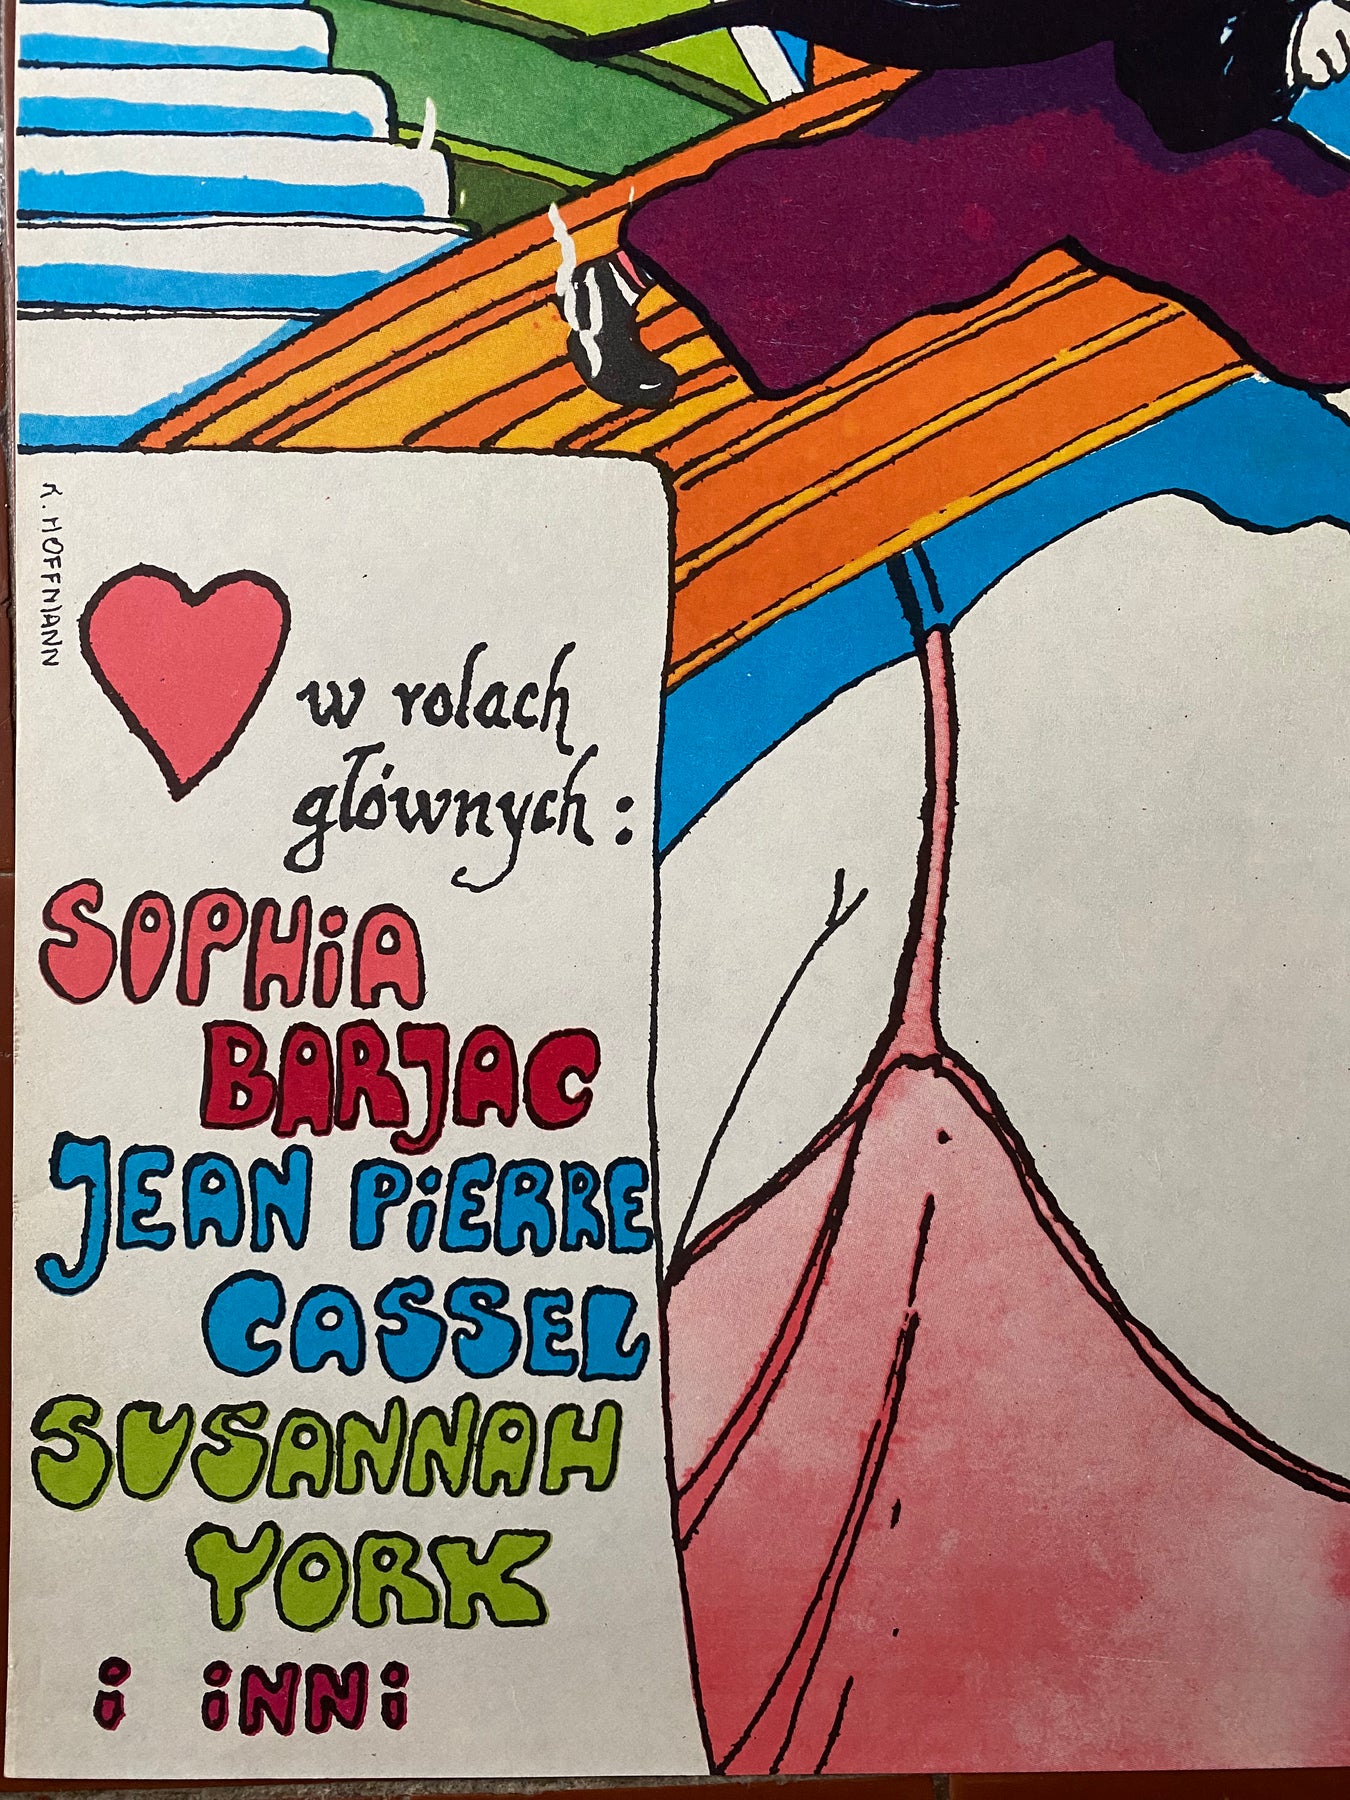 K. HOFFMANN
w rolach
głównych:
SOPHiA
BARJAC
JEAN PiERRE
CASSEL
SUSANNAH
YORK
i iNNi